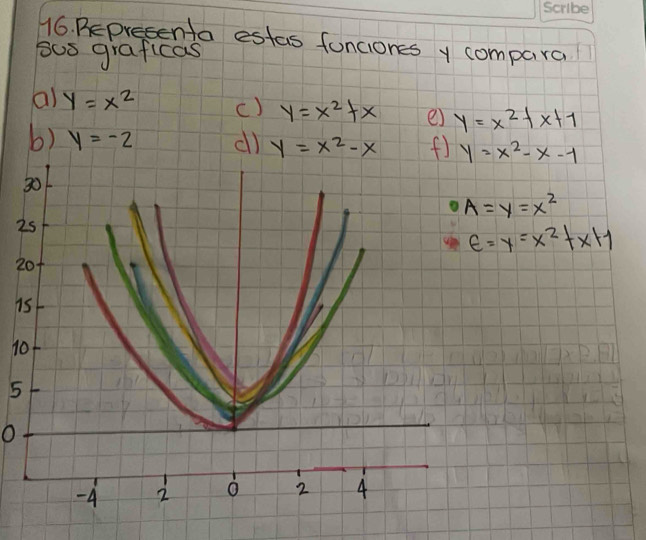 Scribe
16. Representa estas funciones y compara
sus graficas
a) y = x²
c) y = x² + x
e) y = x² + x + 1
b) y = -2
d) y = x² - x
f) y = x² - x - 1
A = y = x²
E = y = x² + x + 1
30
25
20
15
10
5
0
-4 2 0 2 4